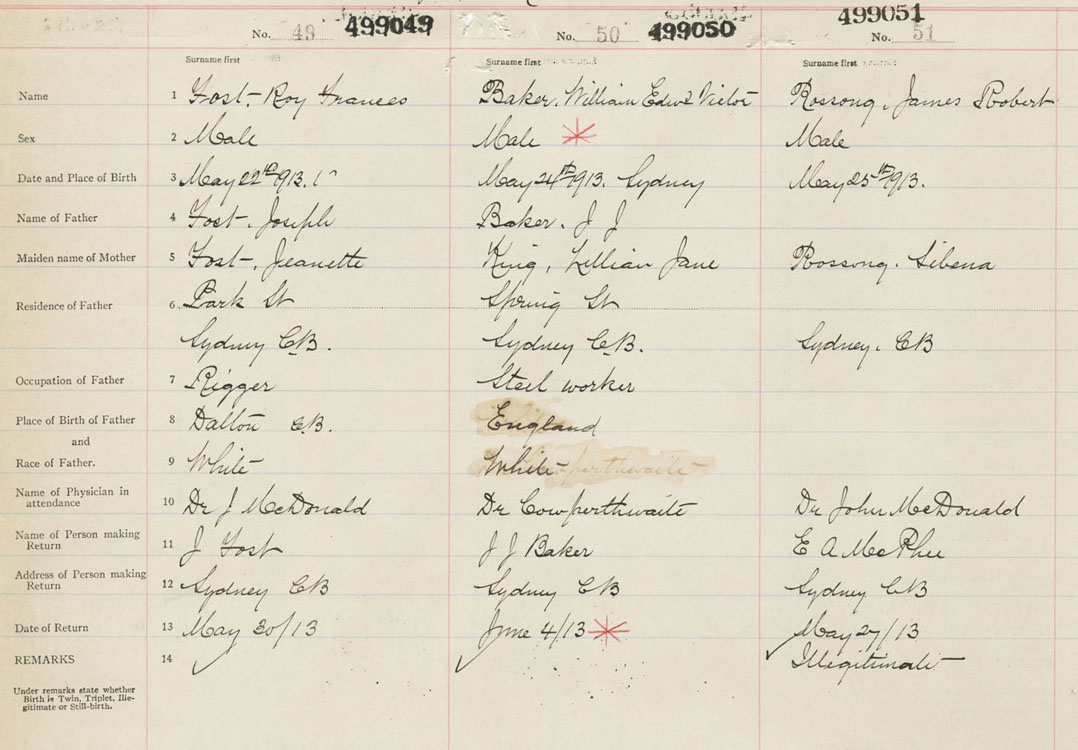 499049 499050 499051
No. 49 No. 50 No. 51
Surname first Surname first Surname first
Name 1 Fost, Roy Frances Baker, William Edwd Victor Rossong, James Robert
Sex 2 Male Male Male
Date and Place of Birth 3 May 22nd 1913. May 24th 1913. Sydney May 25th 1913.
Name of Father 4 Fost, Joseph Baker, J J
Maiden name of Mother 5 Fost, Jeanette King, Lillian Jane Rossong, Sibena
Residence of Father 6 Park St Spring St
Sydney C.B. Sydney C.B. Sydney, CB
Occupation of Father 7 Rigger Steel worker
Place of Birth of Father 8 Dalton C.B. England
and
Race of Father. 9 White White
Name of Physician in 10 Dr J McDonald Dr Cowperthwaite Dr John McDonald
attendance
Name of Person making 11 J Fost J J Baker E A McPhee
Return
Address of Person making 12 Sydney CB Sydney CB Sydney CB
Return
Date of Return 13 May 30/13 June 4/13 May 27/13
REMARKS 14 Illegitimate
Under remarks state whether
Birth is Twin, Triplet, Ille-
gitimate or Still-birth.